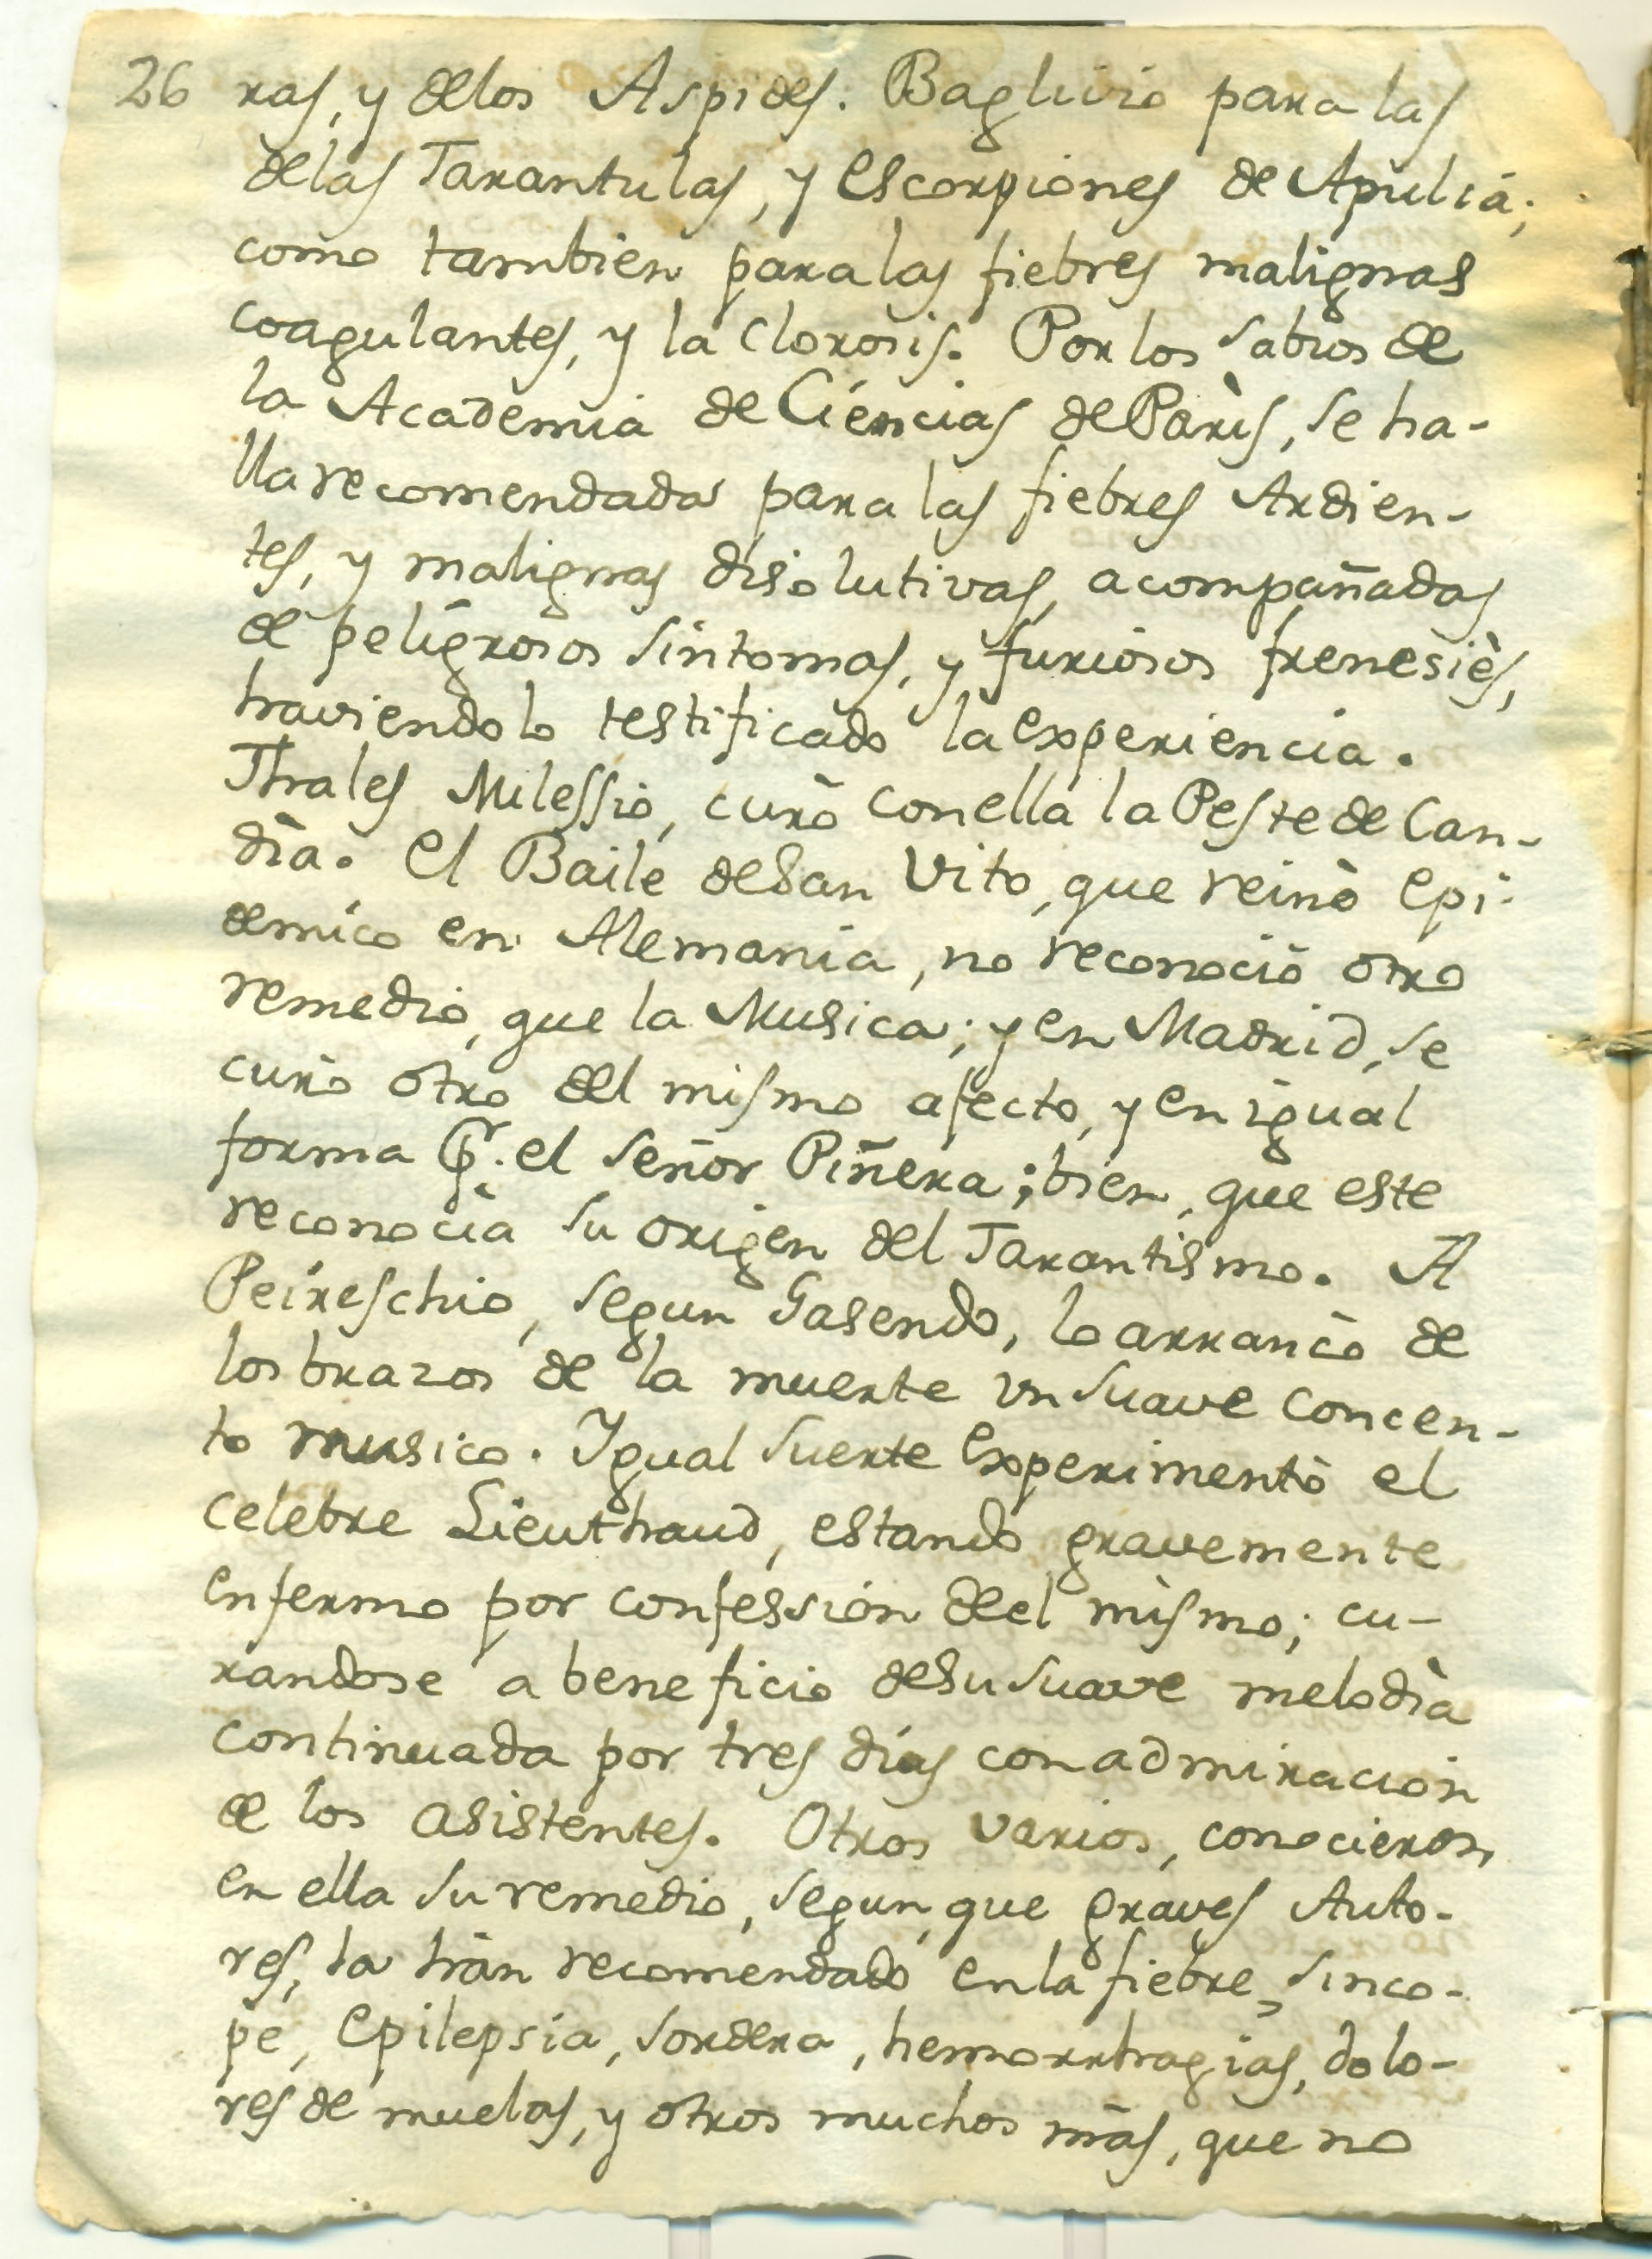 26 ras, y delos Aspides. Baglivio para las
delas Tarantulas, y escorpiones de Apulia;
como tambien para las fiebres malignas
coagulantes, y la Clorosis. Por los sabios de
la Academia de Ciencias de Parìs, se ha-
lla recomendada para las fiebres Ardien-
tes, y malignas disolutivas, acompañadas
de peligrosos sintomas, y furiosos frenesiès,
haviendolo testificado la experiencia.
Thales Milessio, curò con ella la Peste de Can-
dìa. El Baile de San Vito, que reinò epi-
demico en Alemania, no reconociò otro
remedio, que la Musica; y en Madrid, se
curò otro del mismo afecto, y en igual
forma Pr. el señor Piñera; bien, que este
reconocìa su origen del Tarantismo. A
Peireschio, segun Gasendo, lo arrancò de
los brazos de la muerte un suave concen-
to musico. Igual suerte experimentò el
celebre Lieuthaud, estando gravemente
enfermo por confessiòn de el mismo; cu-
randose a beneficio de su suave melodìa
continuada por tres dìas con admiraciòn
de los asistentes. Otros varios, conocieron
en ella su remedio, segun, que graves Auto-
res, la hàn recomendado en la fiebre, sinco-
pe, epilepsia, sordera, hemorrhagias, dolo-
res de muelas, y otros muchos màs, que no